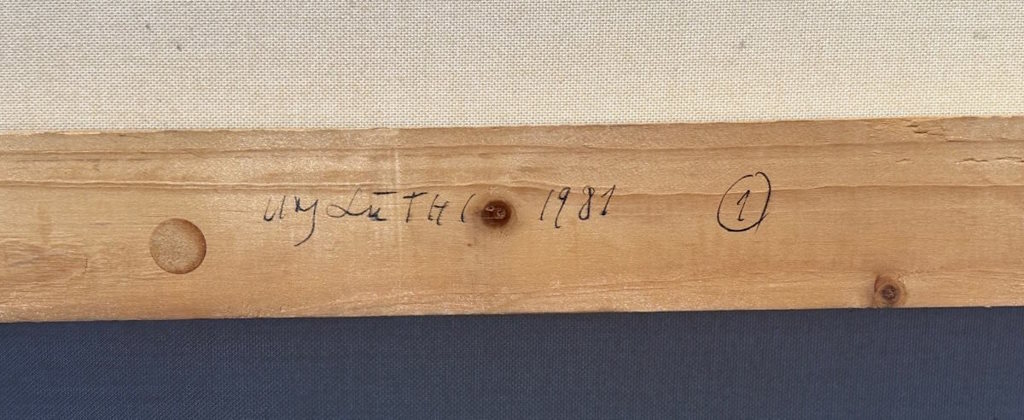 Urs LüTHI 1981 ①